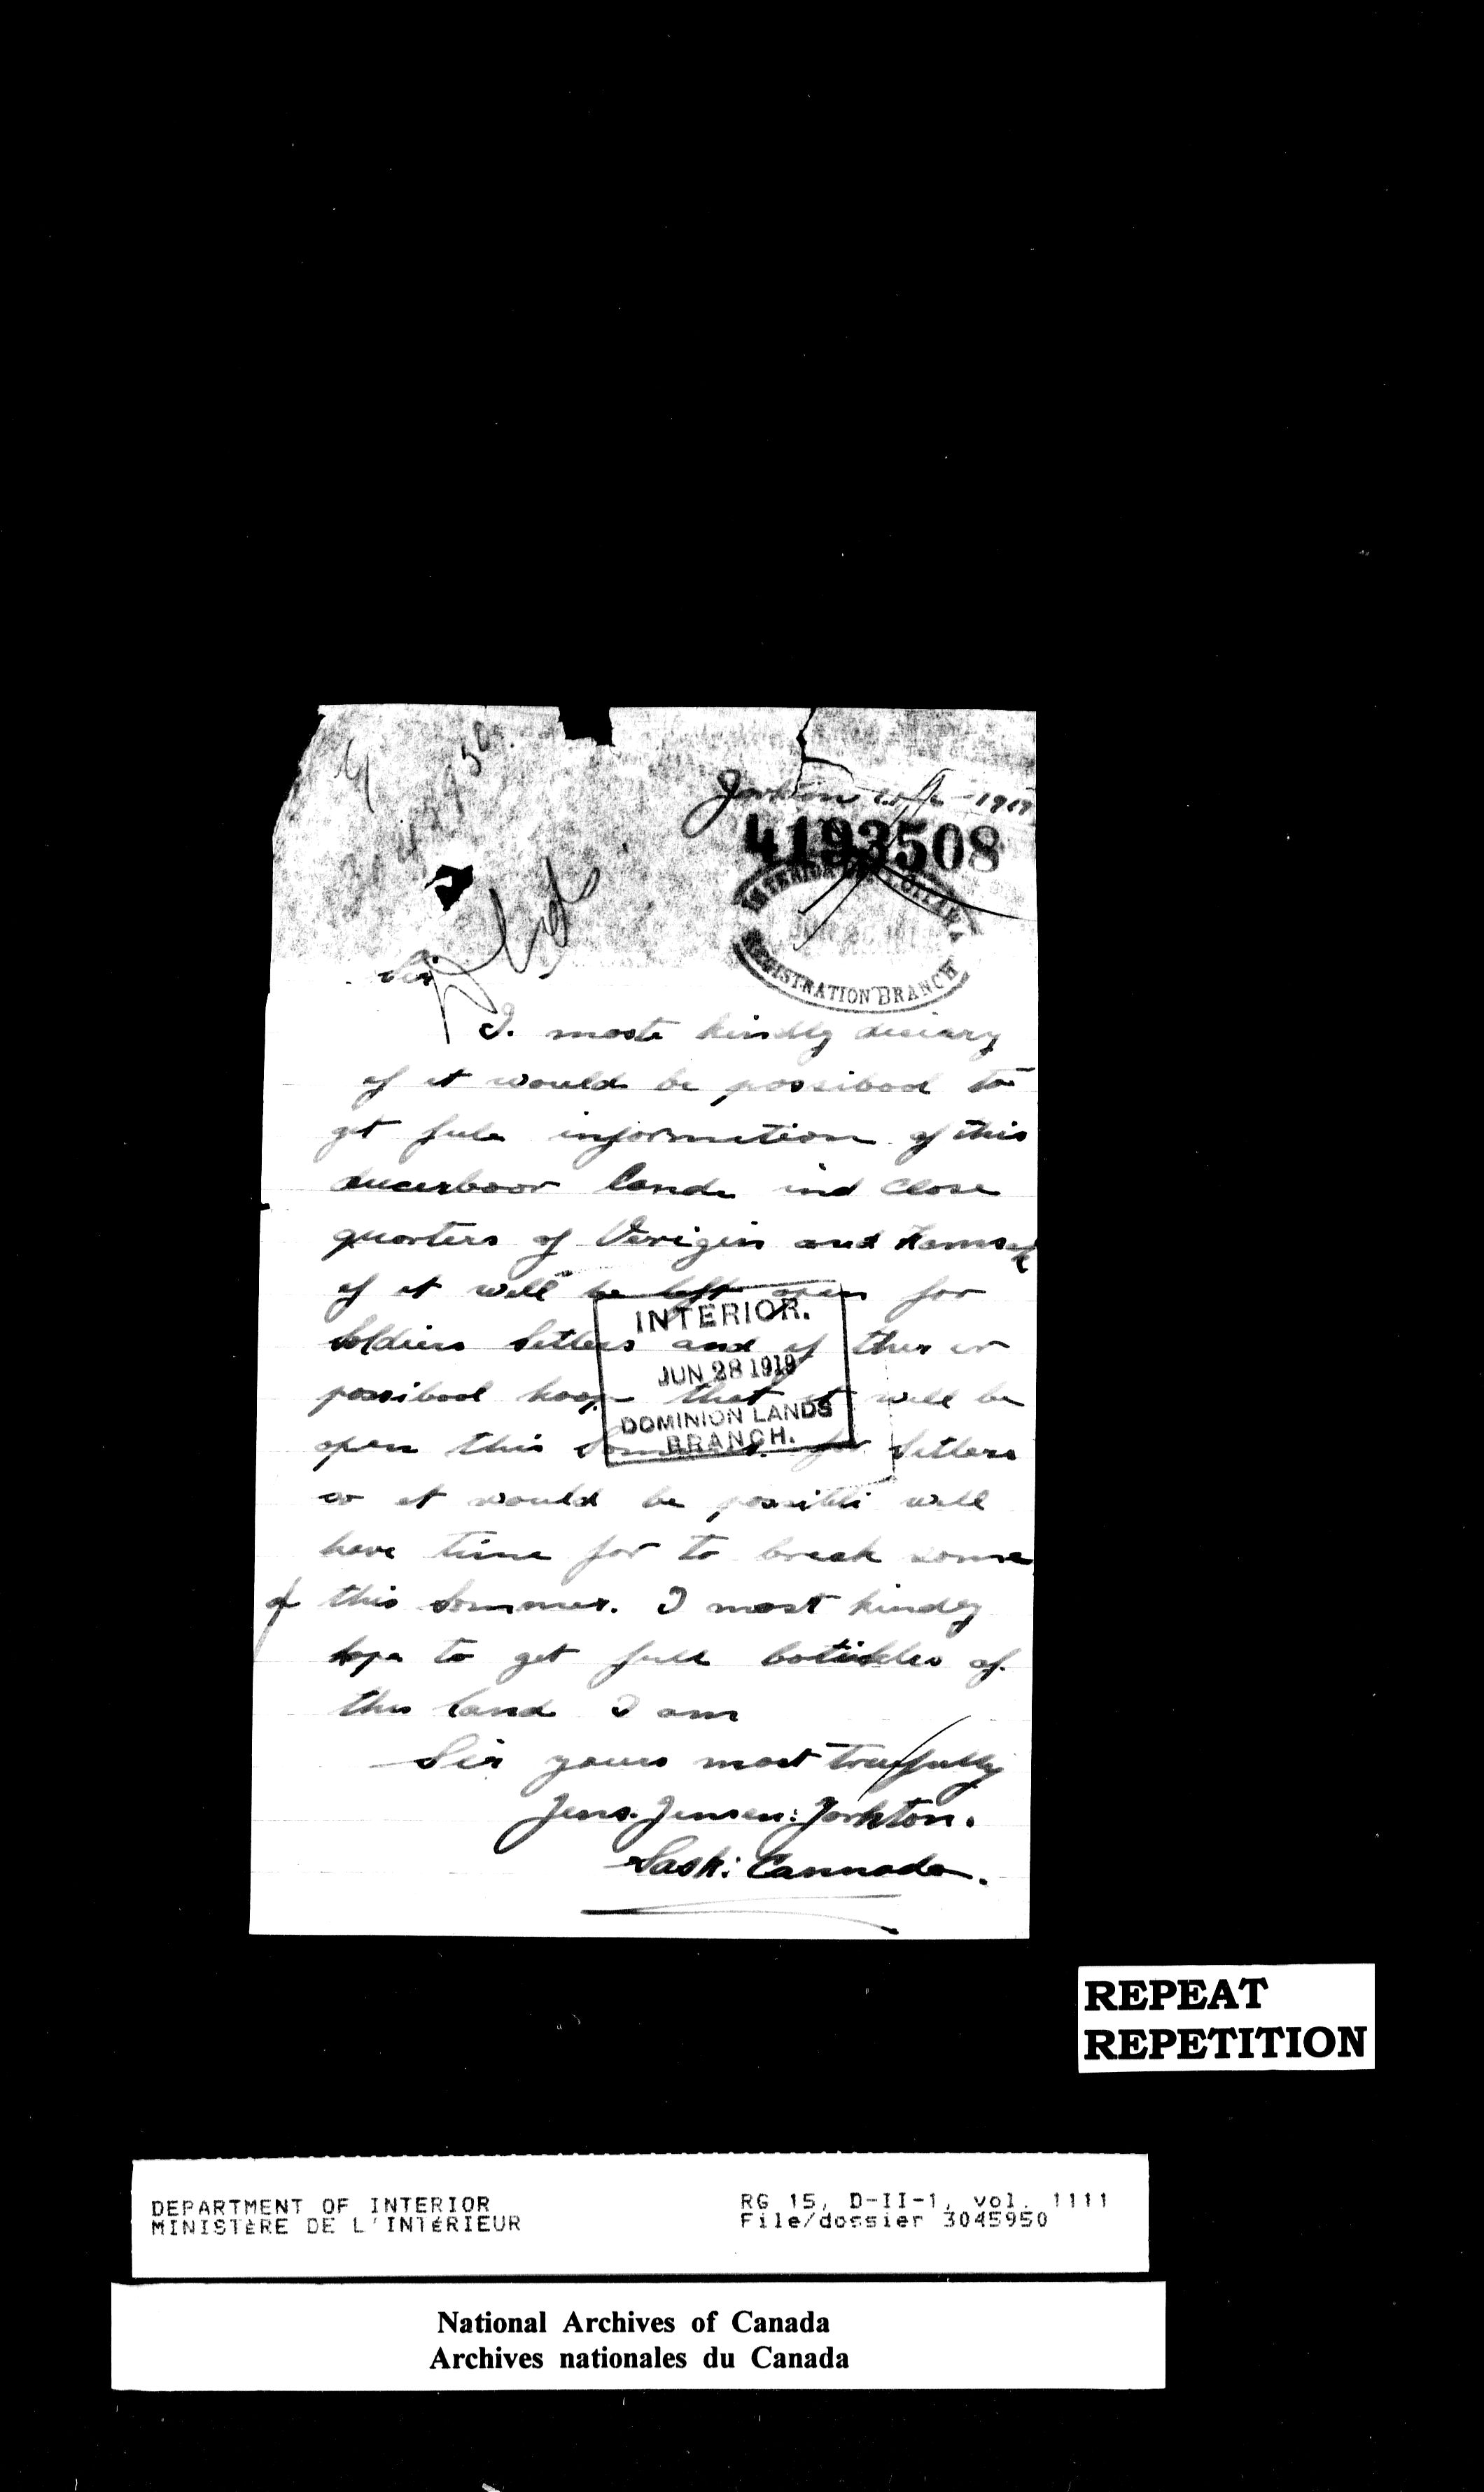 3045950.
Yorkton 1919
4193508
INTERIOR OTTAWA
REGISTRATION BRANCH
Sir
I. moste kindly
of it would be possibool to
get fule information of this
lande ind close
quarters of Verigin and Kamsak
of it will be left open for
Soldiers Setlers and if ther is
possibool hoop that it will be
open this Sommer. for Setlers
so it would be possibli will
have time for to break some
of this Sommer. I most kindly
hope to get full of.
this land I am
Sir yours most
Jens. Jensen: Yorkton.
Sask: Cannada.
INTERIOR.
JUN 28 1919
DOMINION LANDS
BRANCH.
REPEAT
REPETITION
DEPARTMENT OF INTERIOR
MINISTÈRE DE L'INTÉRIEUR
RG 15, D-II-1, vol. 1111
File/dossier 3045950
National Archives of Canada
Archives nationales du Canada